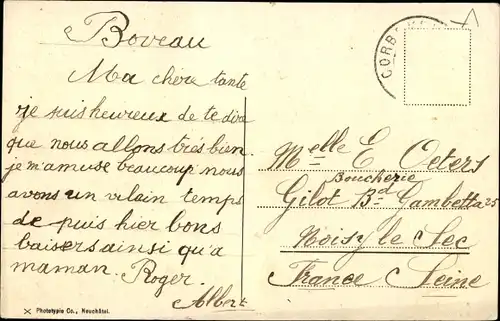 Boveau
Ma chère tante
je suis heureux de te dire
que nous allons très bien
je m'amuse beaucoup nous
avons un vilain temps
de puis hier bons
baisers ainsi qu'a
maman. Roger.
Albert
Phototypie Co., Neuchâtel.
CORB
Melle E Oeters
Boucherie
Gilot Bd Gambetta 25
Noisy le Sec
France Seine